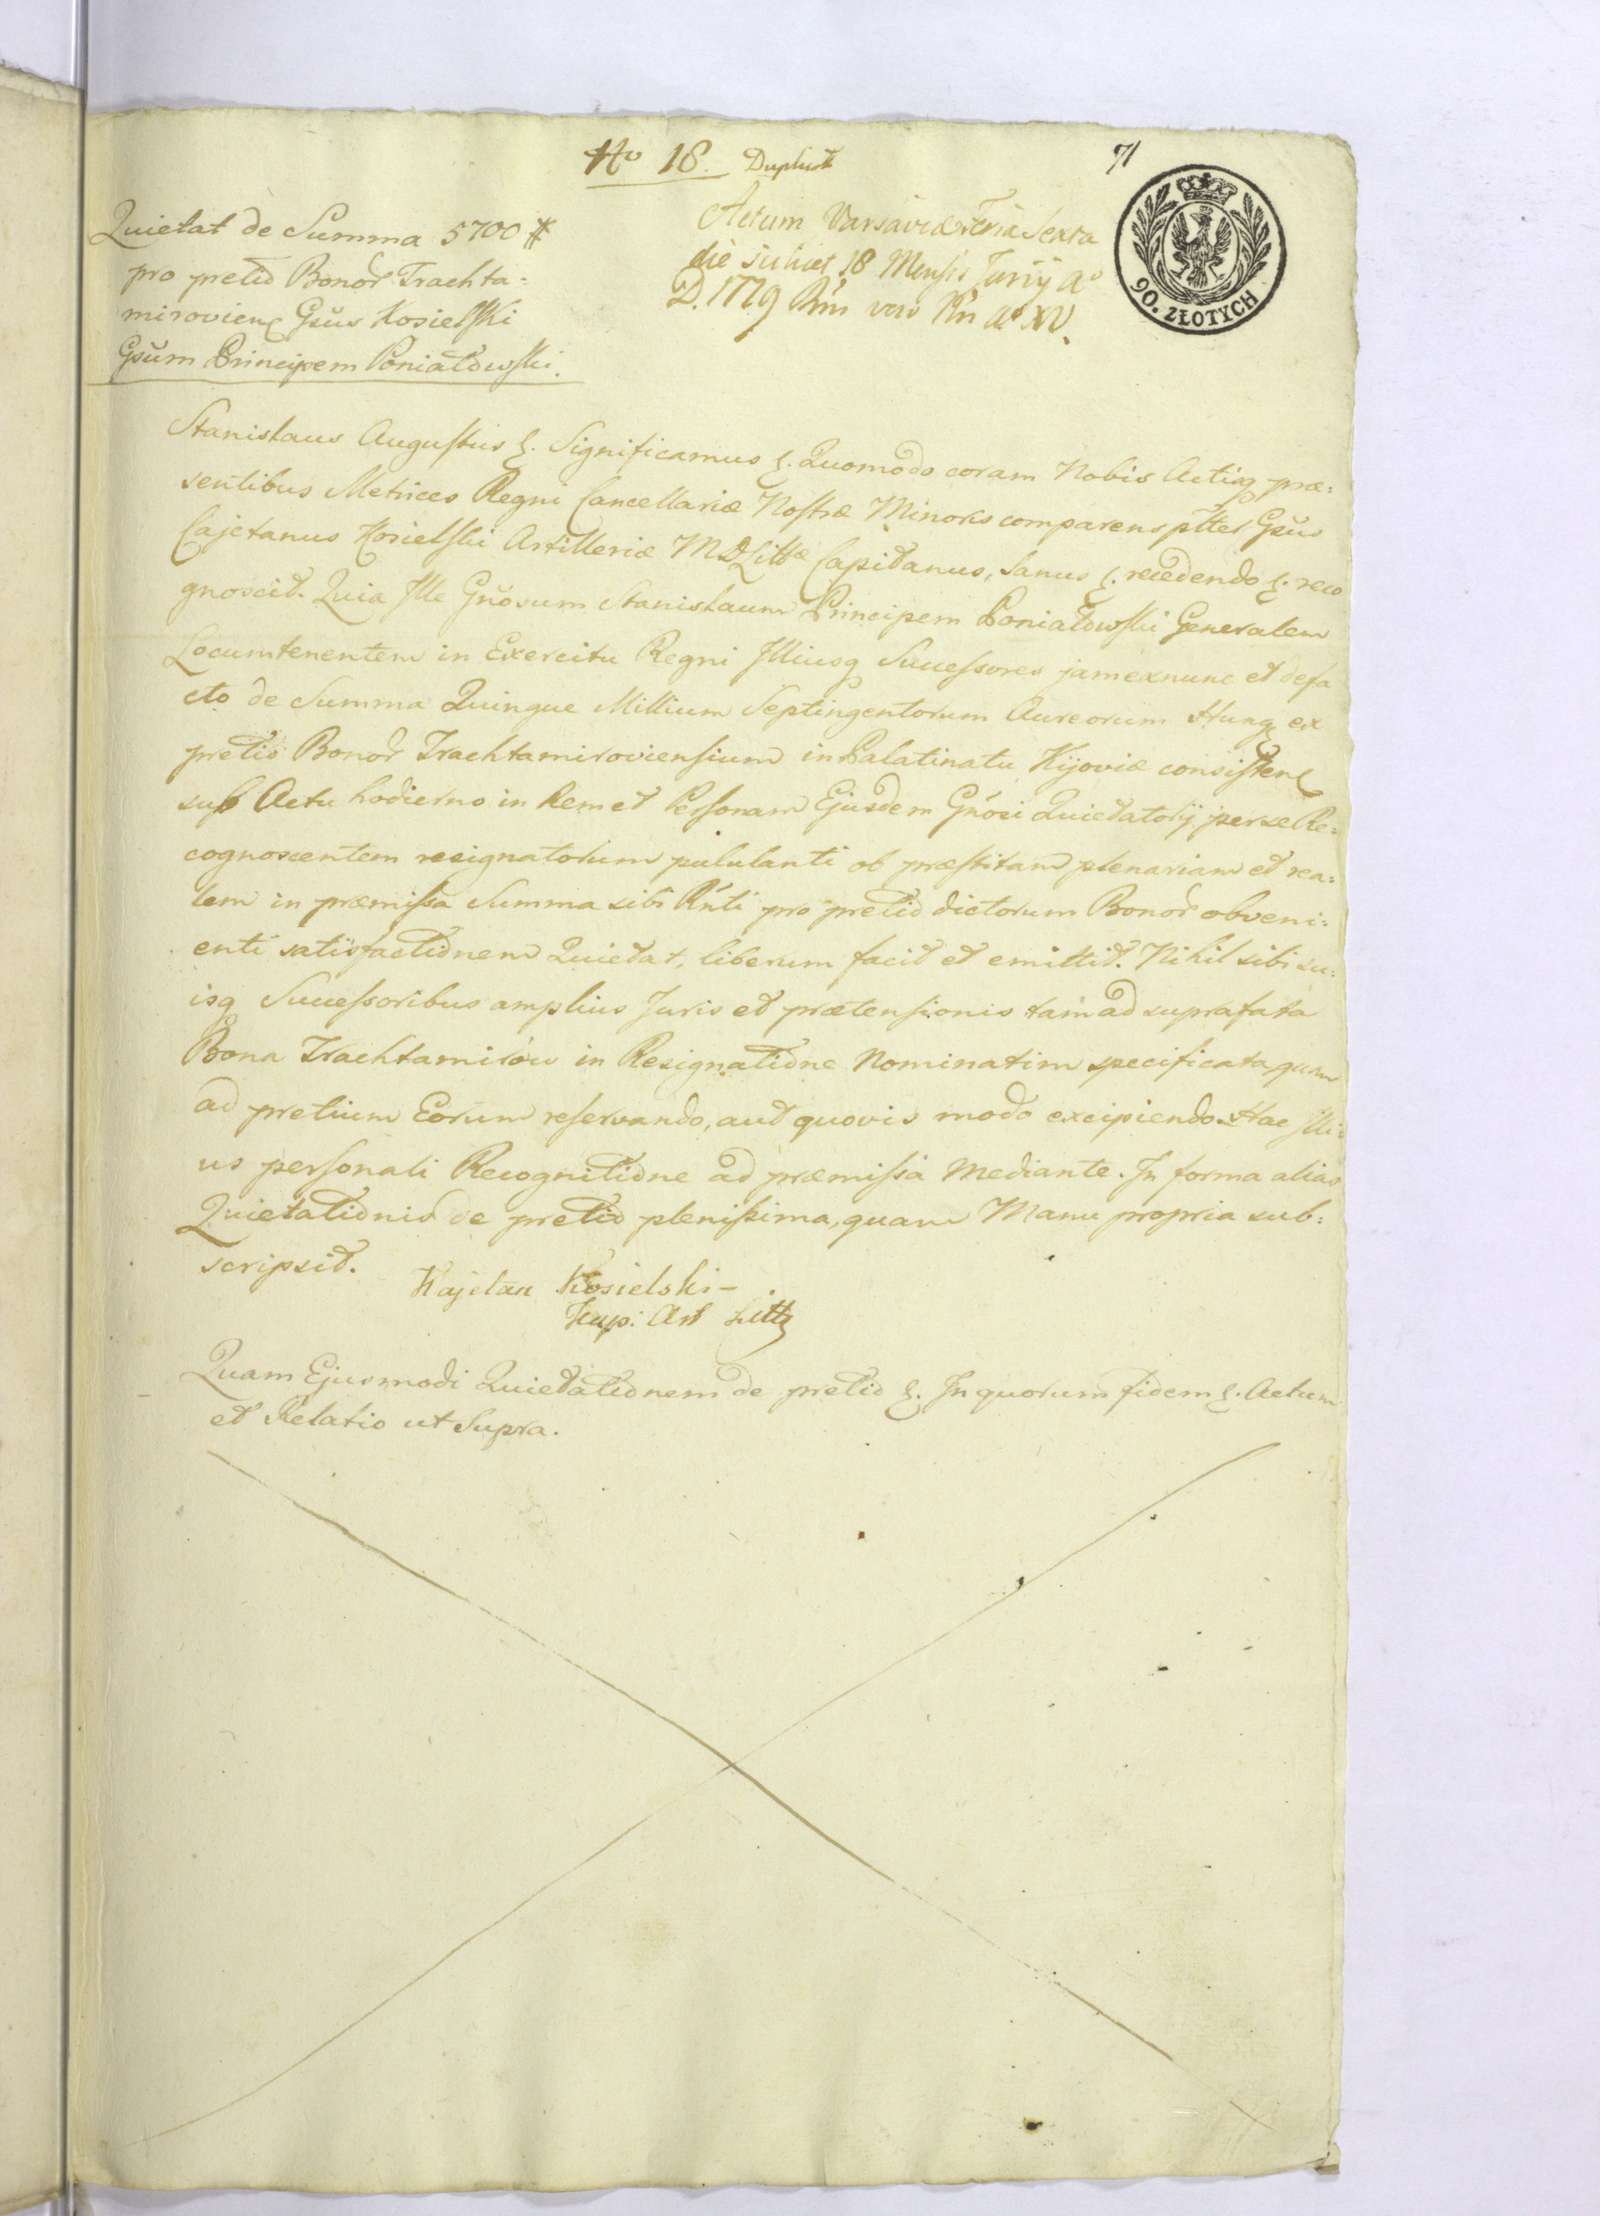 No 18. Duplicat
71
90. ZŁOTYCH
Quietat de Summa 5700 #
pro pretio Bonor Trachta-
miroviens Gsus Kosielski
Gsum Principem Poniatowski.
Actum Varsaviæ Feria Sexta
die scilicet 18 Mensis Junij Ao
D. 1779 Rni vero Ao XV.
Stanislaus Augustus &. Significamus &. Quomodo coram Nobis Actisq præ-
sentibus Metrices Regni Cancellariæ Nostræ Minoris comparens Gsus
Cajetanus Kosielski Artilleriæ MDLittæ Capitanus, Sanus &. recedendo &. reco
gnoscit. Quia Ille Gnosum Stanislaum Principem Poniatowski Generalem
Locumtenentem in Exercitu Regni Illiusq Successores jamexnunc et defa
cto de Summa Quinque Millium Septingentorum Aureorum Hung ex
pretio Bonor Trachtamiroviensium in Palatinatu Kijoviæ consistens
sub Actu hodierno in Rem et Personam Ejusdem Gnosi Quietatorij per se Re-
cognoscentem resignatorum pululanti ob præstitam plenariam et rea-
lem in præmissa Summa sibi Rnti pro pretio dictorum Bonor obveni-
enti satisfactionem Quietat, liberum facit et emittit. Nihil sibi su-
isq Successoribus amplius Juris et prætensionis tam ad suprafata
Bona Trachtamirów in Resignatione Nominatim specificata quam
ad pretium Eorum reservando, aut quovis modo excipiendo. Hac Illi
us personali Recognitione ad præmissa Mediante. In forma alias
Quietationis de pretio plenissima, quam Manu propria sub-
scripsit.
Kajetan Kosielski -
Kap: Art Litt
Quam Ejusmodi Quietationem de pretio &. In quorum fidem &. Actum
et Relatio ut Supra.